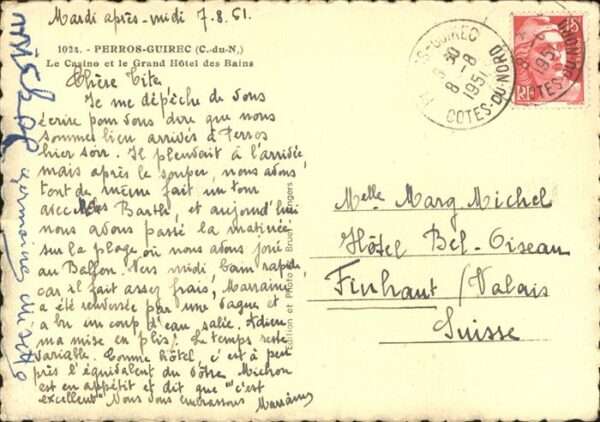 Mardi après-midi 7.8.51.
1024. - PERROS-GUIREC (C.-du-N.)
Le Casino et le Grand Hôtel des Bains
Chère Tite,
Je me dépêche de vous
écrire pour vous dire que nous
sommes bien arrivés à Perros
hier soir. Il pleuvait à l'arrivée
mais après le souper, nous avons
tout de même fait un tour
avec Barthe, et aujourd'hui
nous avons passé la matinée
sur la plage où nous avons joué
au Ballon. Vers midi bain rapide,
car il fait assez frais, Marraine
a été renversée par une vague et
a bu un coup d'eau salée. Adieu
ma mise en plis! Le temps reste
variable. Comme hôtel, c'est à peu
près l'équivalent du vôtre. Michon
est en appétit et dit que "c'est
excellent" Nous vous embrassons
Edition et Photo Bruel Angers
PERROS-GUIREC
8 30
8-8
1951
COTES-DU-NORD
RF
Melle Marg. Michel
Hôtel Bel-Oiseau
Finhaut /Valais
Suisse